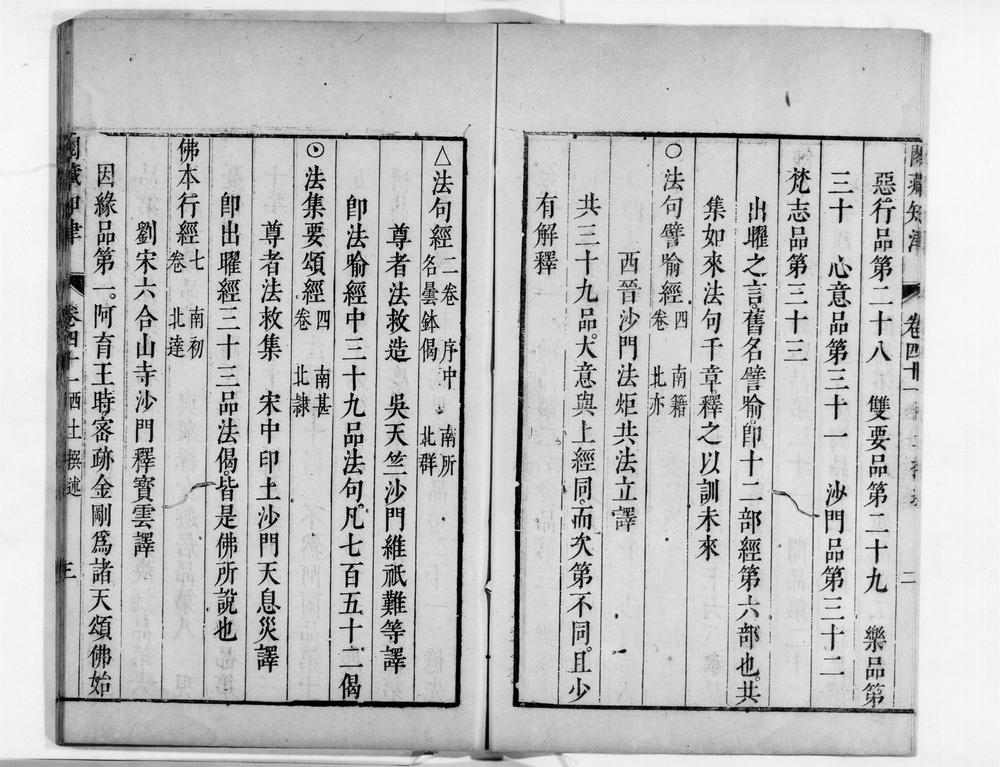 閱藏知津 卷四十一 二
惡行品第二十八 雙要品第二十九 樂品第
三十 心意品第三十一 沙門品第三十二
梵志品第三十三
出曜之言。舊名譬喻。卽十二部經第六部也。共
集如來法句千章。釋之以訓未來
○法句譬喻經四卷 南籍北亦
西晉沙門法炬共法立譯
共三十九品。大意與上經同。而次第不同。且少
有解釋
△法句經二卷 序中名曇鉢偈 南所北群
尊者法救造 吳天竺沙門維祇難等譯
卽法喻經中三十九品法句。凡七百五十二偈
⊙法集要頌經四卷 南甚北隸
尊者法救集 宋中印土沙門天息災譯
卽出曜經三十三品法偈。皆是佛所說也
佛本行經七卷 南初北達
劉宋六合山寺沙門釋寶雲譯
因緣品第一。阿育王時。審跡金剛爲諸天頌佛始
閱藏知津 卷四十一 西土撰述 三